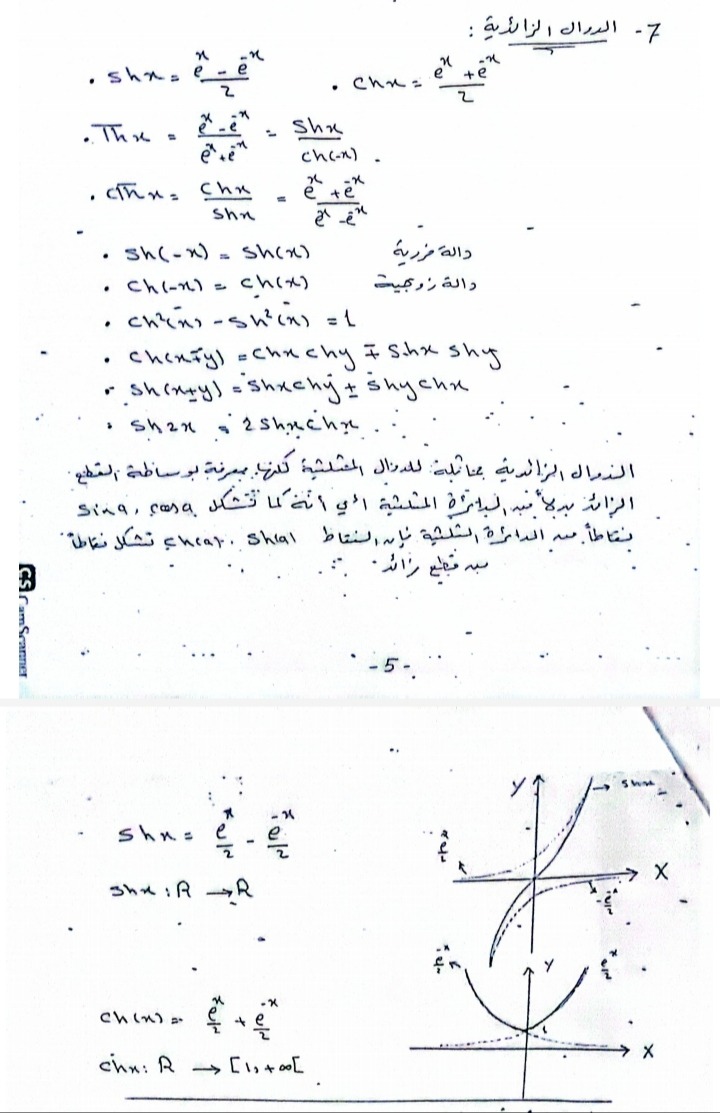 7- الدوال الزائدية :
. shx = (e^x - e^-x)/2 . chx = (e^x + e^-x)/2
. Thx = (e^x - e^-x)/(e^x + e^-x) = shx/ch(-x) .
. cThx = chx/shx = (e^x + e^-x)/(e^x - e^-x)
. sh(-x) = sh(x) دالة فردية
. ch(-x) = ch(x) دالة زوجية
. ch²(x) - sh²(x) = 1
. ch(x∓y) = chx chy ∓ shx shy
. sh(x±y) = shxchy ± shychx
. sh2x = 2shxchx
الدوال الزائدية مماثلة للدوال المثلثية لكنها معرفة بوساطة القطع
الزائد بدلاً من الدائرة المثلثية أي أنه كما تشكل sina , cosa
نقاطاً من الدائرة المثلثية فإن النقاط cha, sha تشكل نقاطاً
من قطع زائد
CS CamScanner
-5-
shx = e^x/2 - e^-x/2
shx : R → R
Y
shx
e^x/2
X
-e^-x/2
ch(x) = e^x/2 + e^-x/2
chx: R → [1, +∞[
e^-x/2
Y
e^x/2
1
X